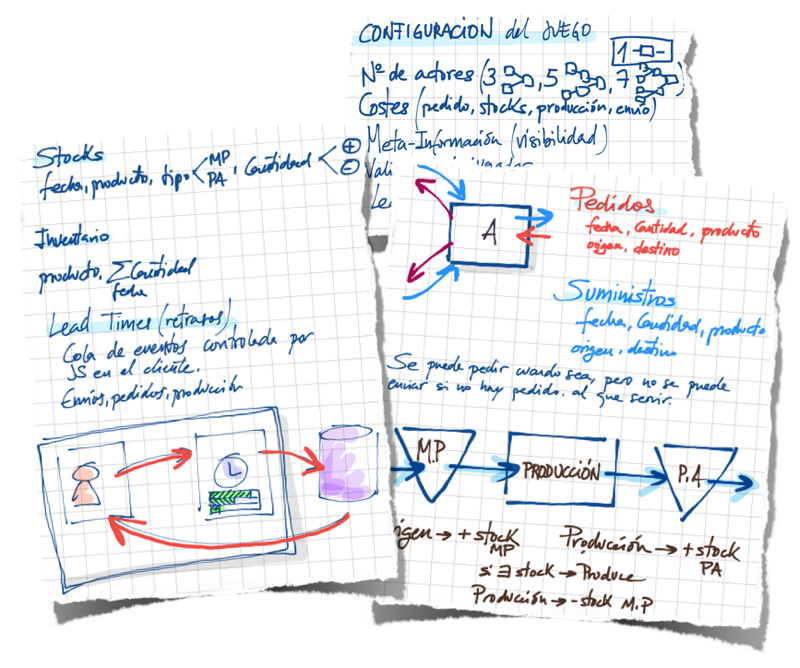 CONFIGURACION del JUEGO
1
Nº de actores (3, 5, 7)
Costes (pedido, stocks, producción, envío)
Meta-Información (visibilidad)
Stocks
fecha, producto, tipo < MP PA, Cantidad < + -
Inventario
producto, ∑ Cantidad
fecha
Lead Times (retrasos)
Cola de eventos controlada por
JS en el cliente.
Envíos, pedidos, producción
A
Pedidos
fecha, Cantidad, producto
origen, destino
Suministros
fecha, Cantidad, producto
origen, destino
Se puede pedir cuando sea, pero no se puede
enviar si no hay pedido al que servir.
M.P
PRODUCCIÓN
P.A
igen → + stock MP
Producción → + stock PA
si ∃ stock → Produce
Producción → - stock M.P